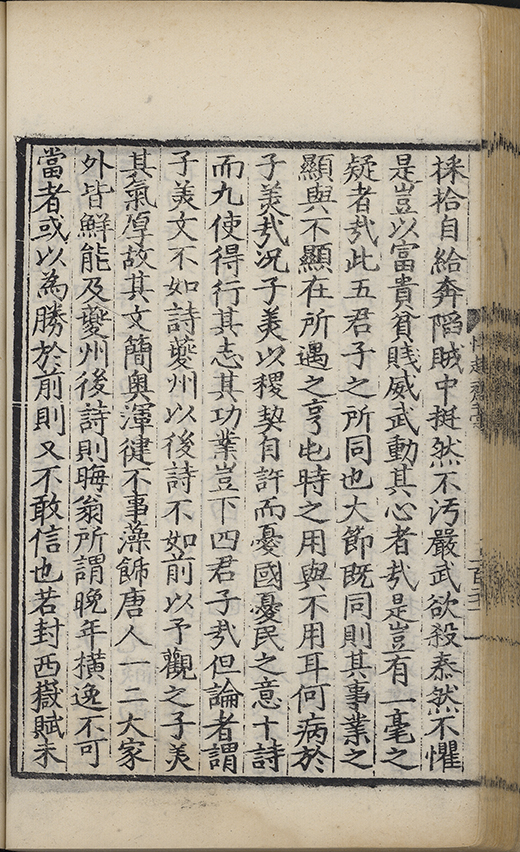 採拾自給奔陷賊中挺然不汚嚴武欲殺泰然不懼
是豈以富貴貧賤威武動其心者㢤是豈有一毫之
疑者㢤此五君子之所同也大節既同則其事業之
顯與不顯在所遇之亨屯時之用與不用耳何病於
子美㢤况子美以稷契自許而憂國憂民之意十詩
而九使得行其志其功業豈下四君子㢤但論者謂
子美文不如詩夔州以後詩不如前以予觀之子美
其氣厚故其文簡奥渾健不事藻餙唐人一二大家
外皆鮮能及夔州後詩則晦翁所謂晩年橫逸不可
當者或以為勝於前則又不敢信也若封西嶽賦未